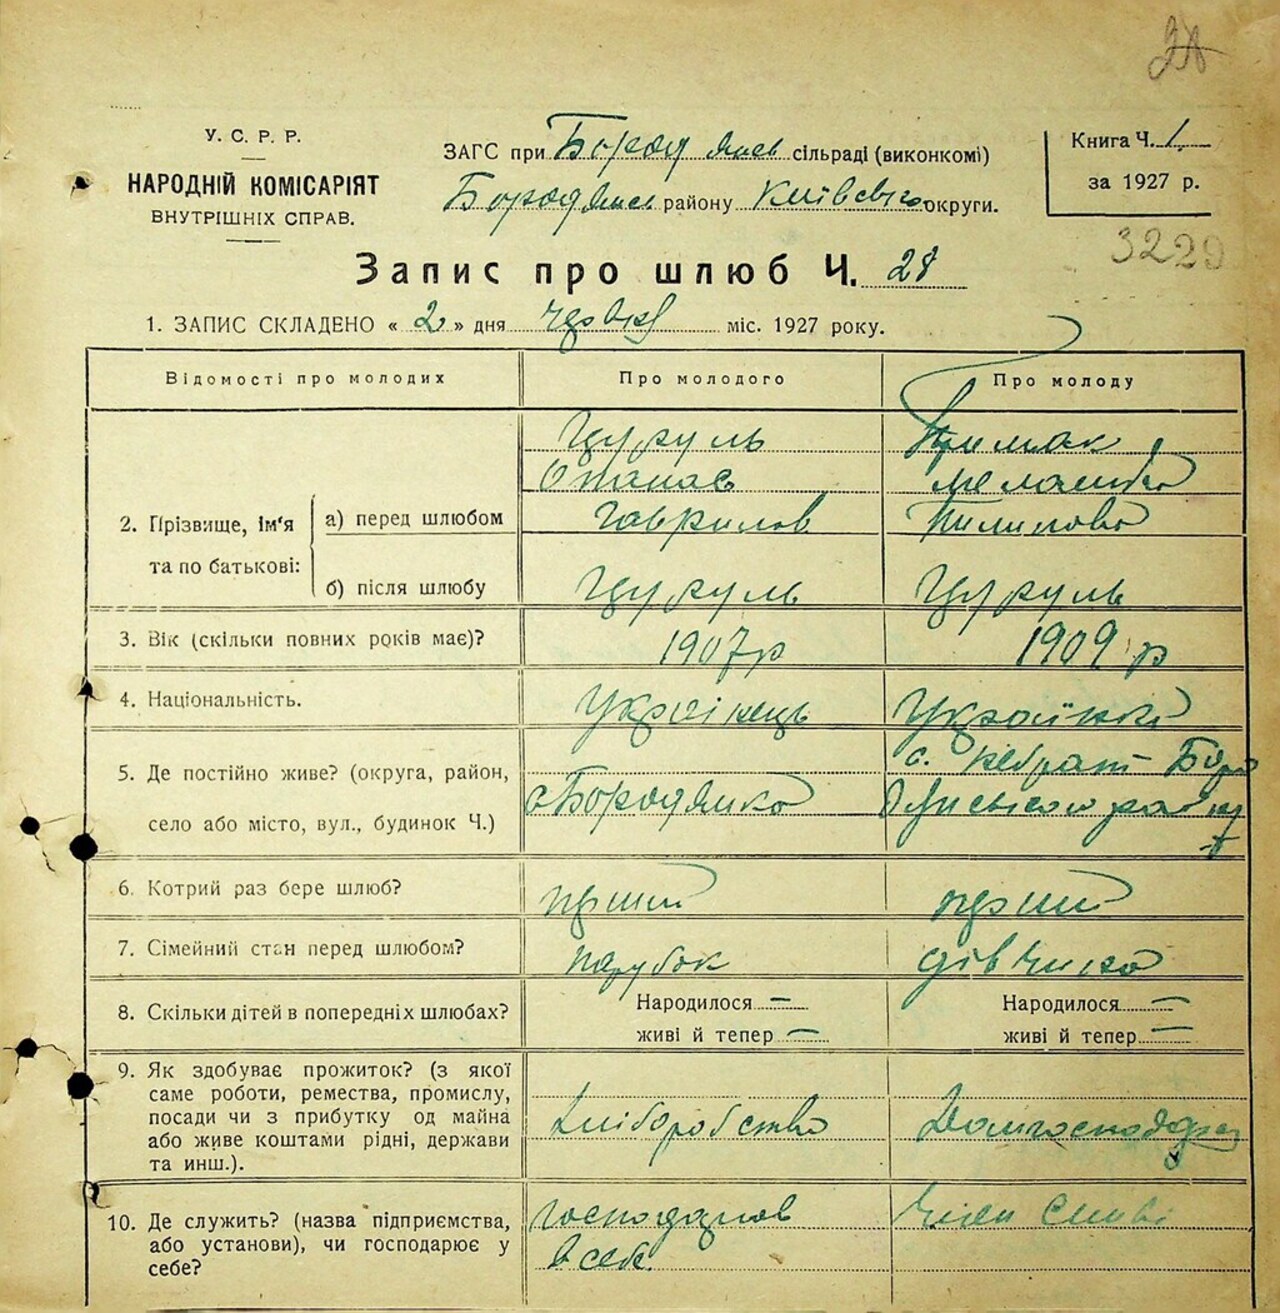 У. С. Р. Р.
НАРОДНІЙ КОМІСАРІЯТ
ВНУТРІШНІХ СПРАВ.
ЗАГС при Бородянс сільраді (виконкомі)
Бородянс району Київсько округи.
Книга Ч. 1
за 1927 р.
3229
Запис про шлюб Ч. 28
1. ЗАПИС СКЛАДЕНО « 2 » дня червня міс. 1927 року.
Відомості про молодих
Про молодого
Про молоду
2. Прізвище, ім'я
та по батькові:
а) перед шлюбом
б) після шлюбу
Цуруль
Опанас
Гаврилов
Цуруль
Примак
Меланка
Пилипова
Цуруль
3. Вік (скільки повних років має)?
1907р
1909 р
4. Національність.
Українець
Українка
5. Де постійно живе? (округа, район,
село або місто, вул., будинок Ч.)
с Бородянка
с. Небрат Боро
дянського району
6. Котрий раз бере шлюб?
перший
перший
7. Сімейний стан перед шлюбом?
парубок
дівчина
8. Скільки дітей в попередніх шлюбах?
Народилося —
живі й тепер —
Народилося —
живі й тепер —
9. Як здобуває прожиток? (з якої
саме роботи, ремества, промислу,
посади чи з прибутку од майна
або живе коштами рідні, держави
та инш.).
Хліборобство
Домгосподарка
10. Де служить? (назва підприємства,
або установи), чи господарює у
себе?
господарюв
в себе
член сімї